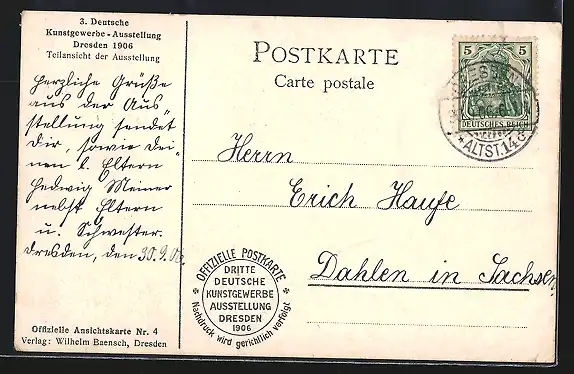 3. Deutsche
Kunstgewerbe-Ausstellung
Dresden 1906
Teilansicht der Ausstellung
Herzliche Grüße
aus der Aus
stellung sendet
Dir, sowie Dei-
nen l. Eltern
Hedwig Meiner
nebst Eltern
u. Schwester.
Dresden, den 30.9.06.
Offizielle Ansichtskarte Nr. 4
Verlag: Wilhelm Baensch, Dresden
POSTKARTE
Carte postale
5 5
DEUTSCHES REICH
DRESDEN
* ALTST. 14
Herrn
Erich Haufe
Dahlen in Sachsen
OFFIZIELLE POSTKARTE
DRITTE
DEUTSCHE
KUNSTGEWERBE
AUSSTELLUNG
DRESDEN
1906
Nachdruck wird gerichtlich verfolgt